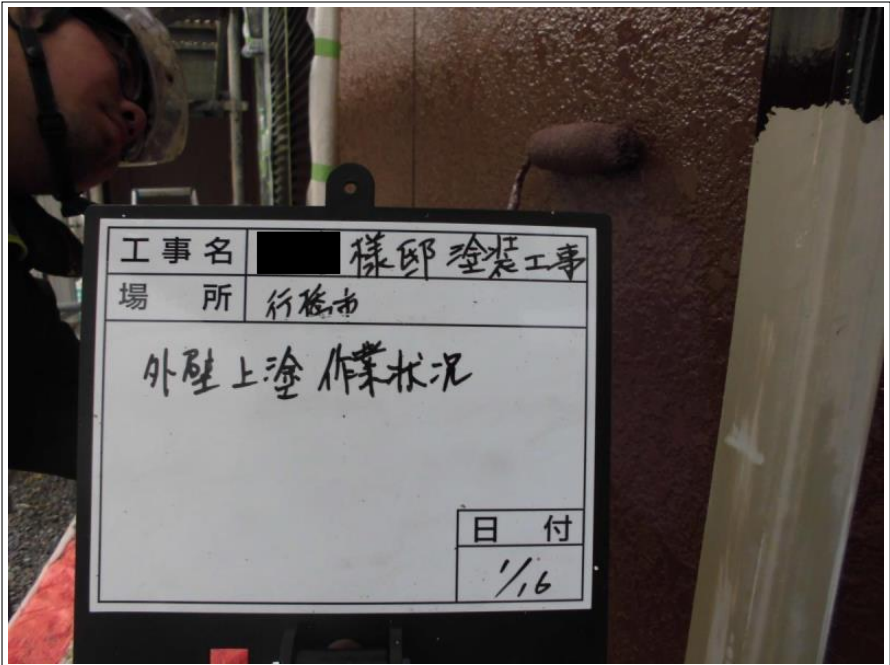 工事名 様邸 塗装工事
場所 行橋市
外壁上塗 作業状況
日付
1/16